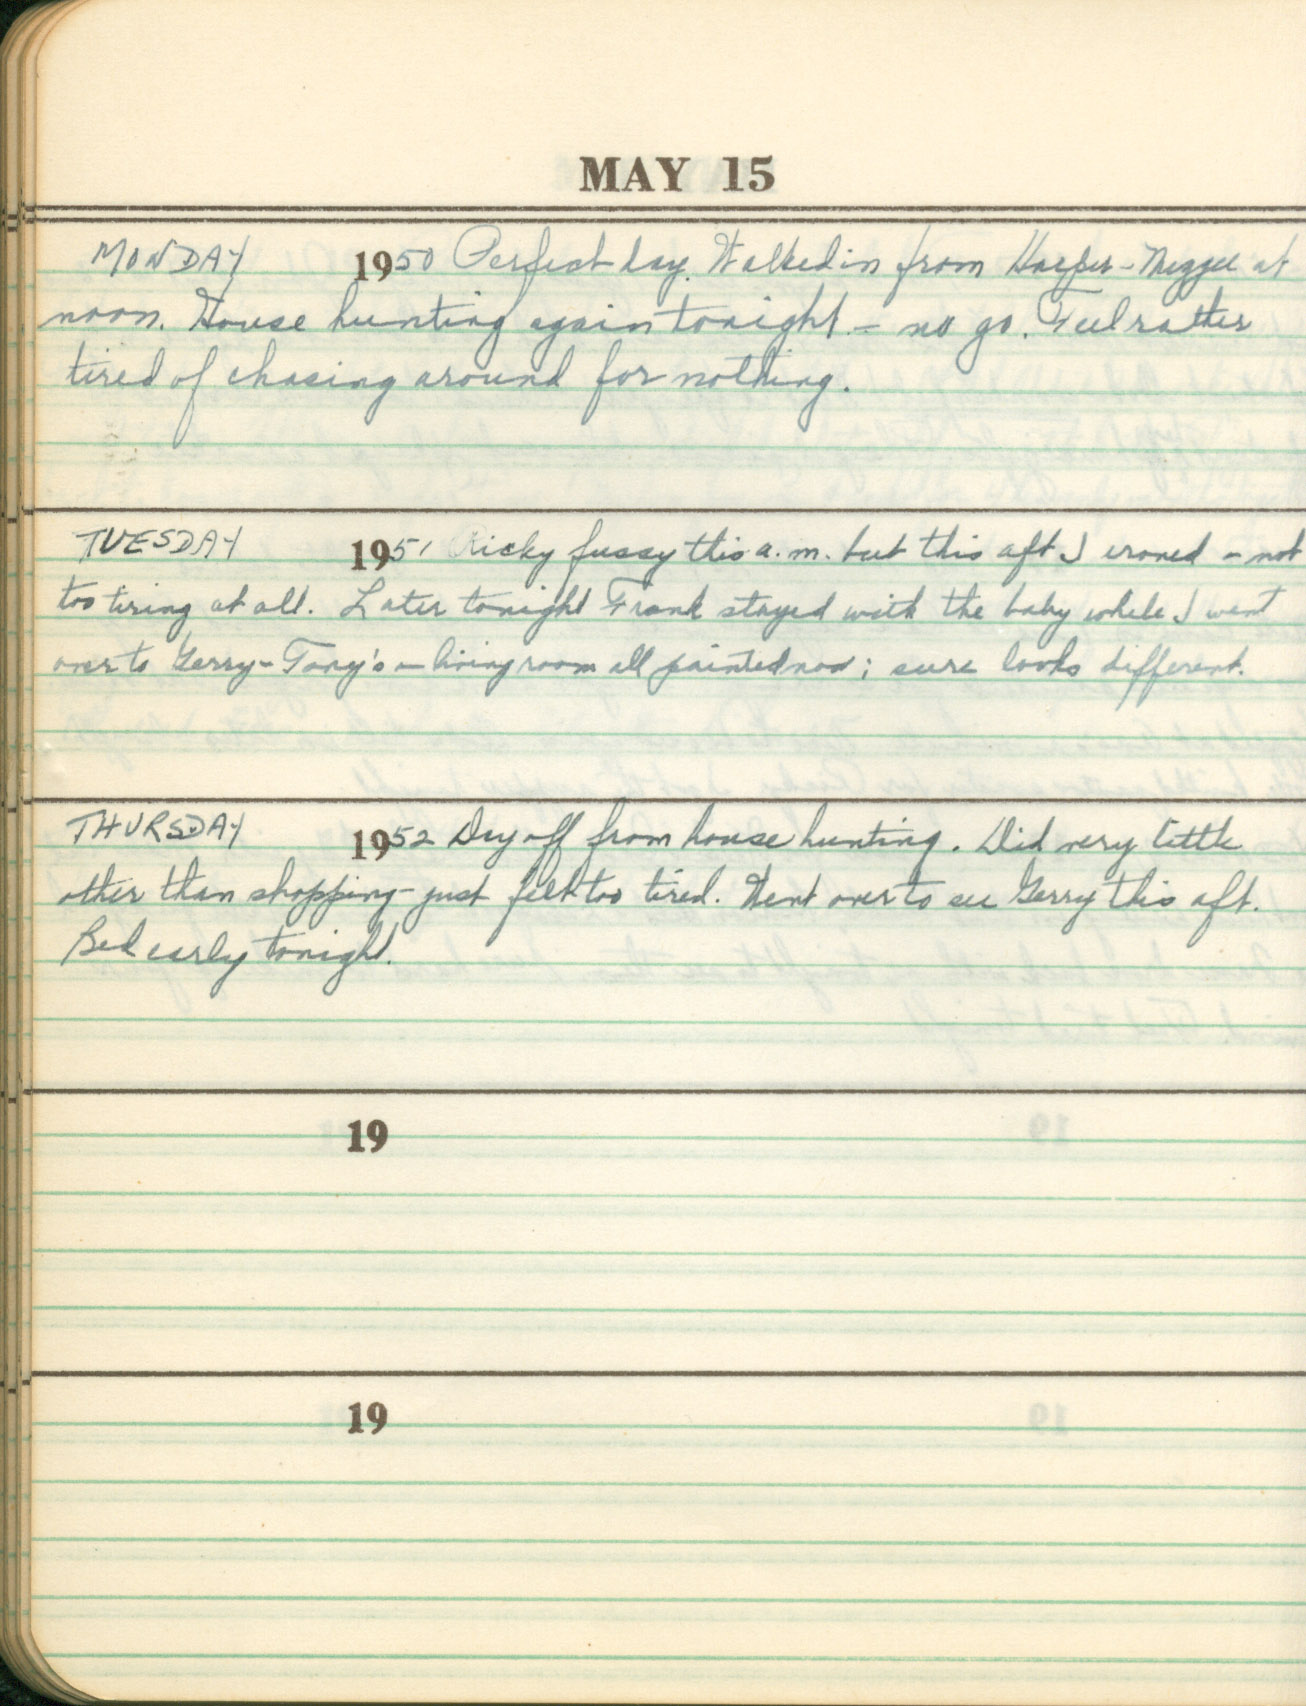 MAY 15
MONDAY 1950 Perfect day. Walked in from Harper - at
noon. House hunting again tonight - no go. Feel rather
tired of chasing around for nothing.
TUESDAY 1951 Ricky fussy this a.m. but this aft I ironed - not
too tiring at all. Later tonight Frank stayed with the baby while I went
over to Gerry-Tony's - living room all painted now; sure looks different.
THURSDAY 1952 Day off from house hunting. Did very little
other than shopping - just felt too tired. Went over to see Gerry this aft.
Bed early tonight.
19
19